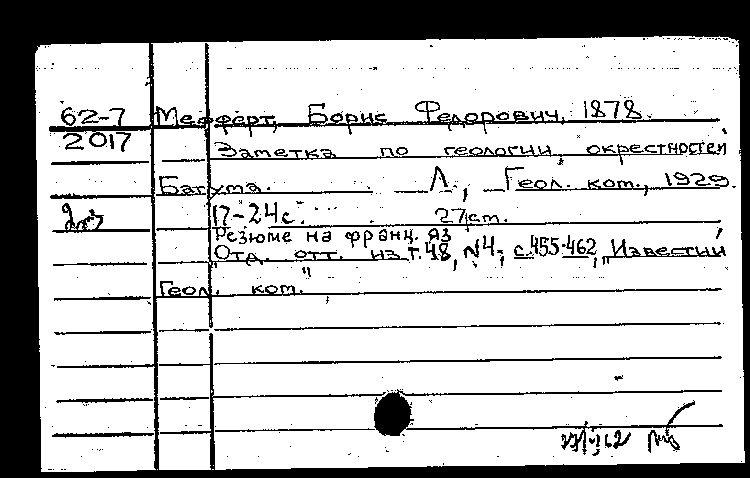 62-7 Мефферт, Борис Федорович, 1878.
2017
Заметка по геологии окрестностей
Батума. Л., Геол. ком., 1929.
17-24 с. 27 cm.
Резюме на франц. яз
Отд. отт. из т. 48, №4, с. 455-462, "Известий
Геол. ком."